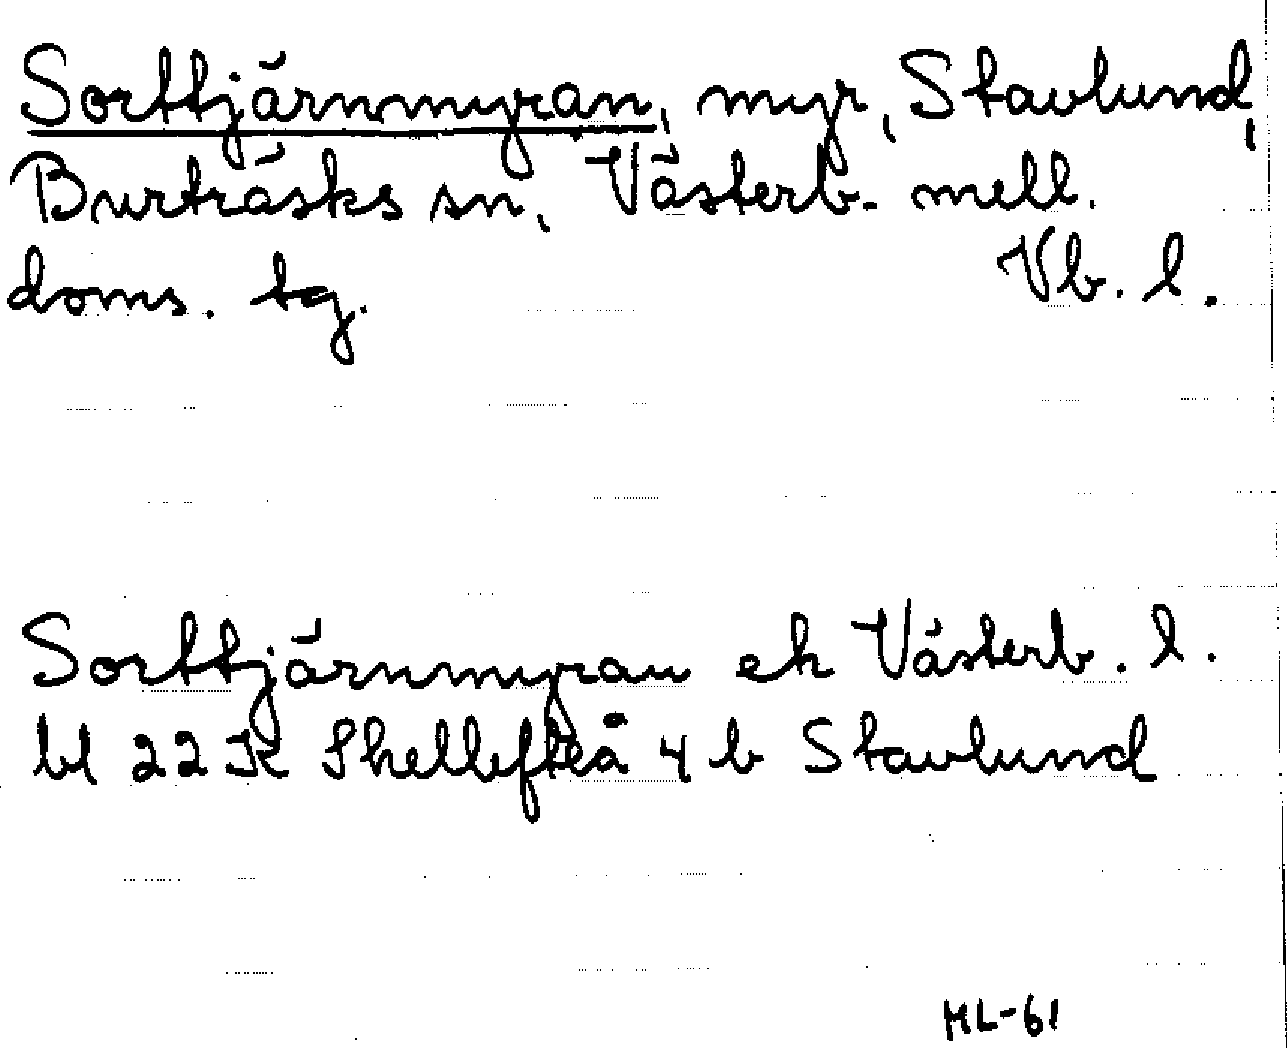 Sorttjärnmyran, myr, Stavlund,
Burträsks sn, Västerb. mell.
doms. tg. Vb. l.
Sorttjärnmyran ek Västerb. l.
bl 22K Skellefteå 4 b Stavlund
ML-61